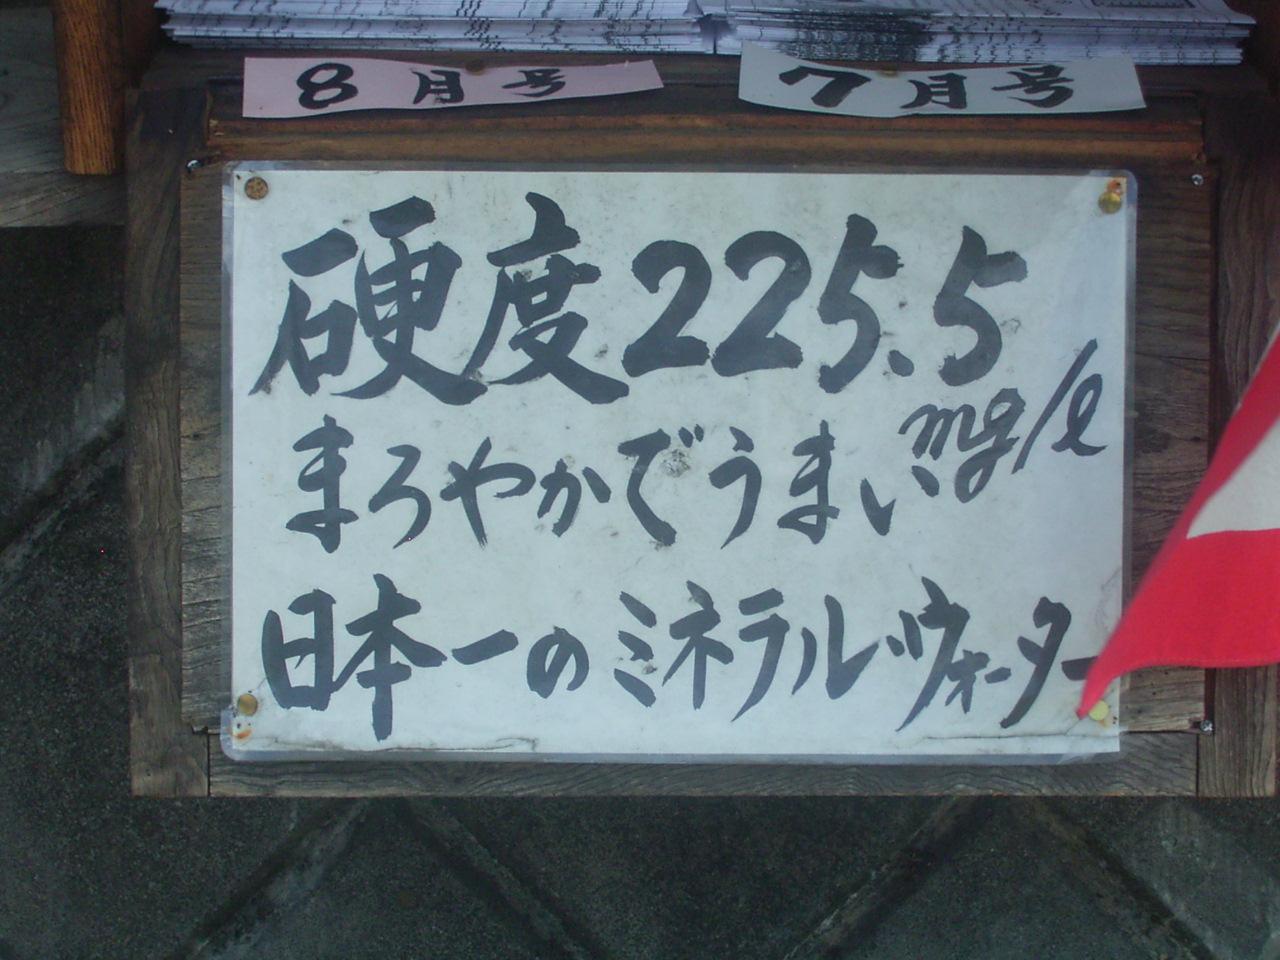 8月号
7月号
硬度225.5
mg/ℓ
まろやかでうまい
日本一のミネラルウォーター